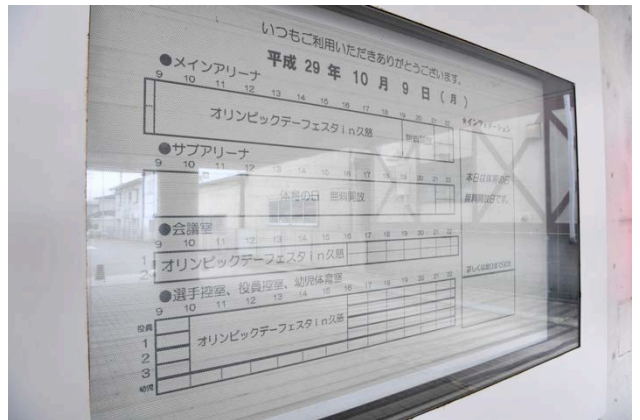 いつもご利用いただきありがとうございます。
平成 29 年 10 月 9 日 (月)
●メインアリーナ
9 10 11 12 13 14 15 16 17 18 19 20 21 22
オリンピックデーフェスタin久慈
無料開放
●サブアリーナ
9 10 11 12 13 14 15 16 17 18 19 20 21 22
体育の日 無料開放
●会議室
9 10 11 12 13 14 15 16 17 18 19 20 21 22
1
2
オリンピックデーフェスタin久慈
●選手控室、役員控室、幼児体育室
9 10 11 12 13 14 15 16 17 18 19 20 21 22
役員
1
2
3
幼児
オリンピックデーフェスタin久慈
★インフォメーション
本日は体育の日
無料開放日です。